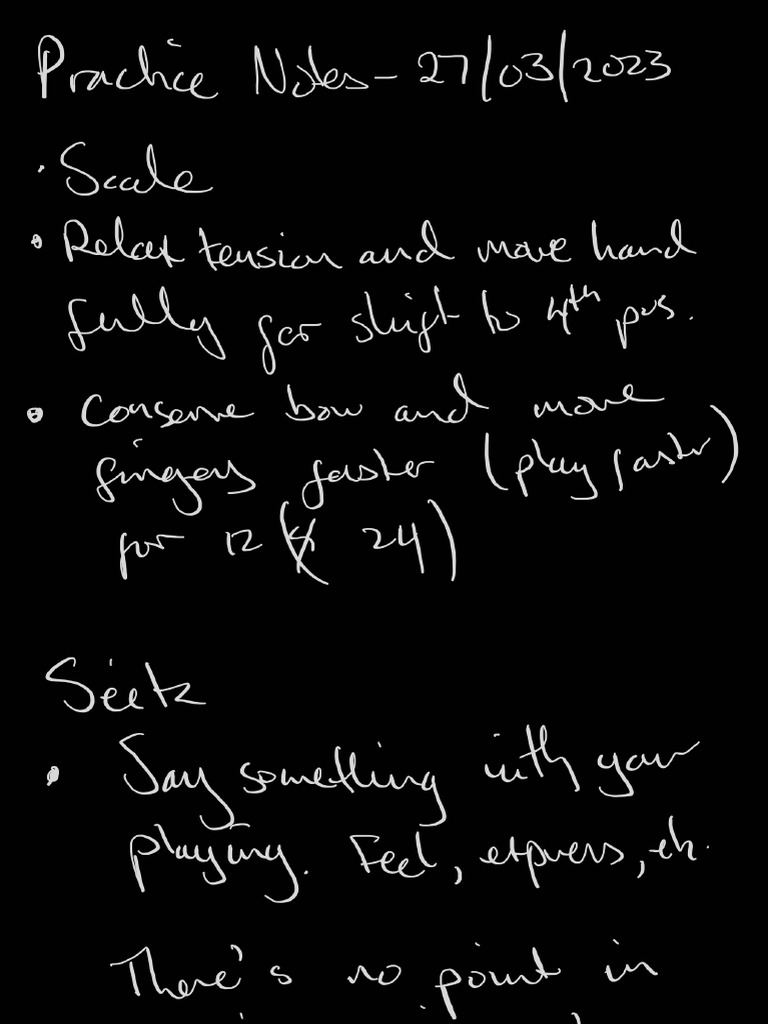 Practice Notes - 27/03/2023
• Scale
• Relax tension and move hand
fully for shift to 4th pos.
• Conserve bow and move
fingers faster (play faster)
for 12 ( 24)
Seitz
• Say something with your
playing. Feel, express, etc.
There's no point in